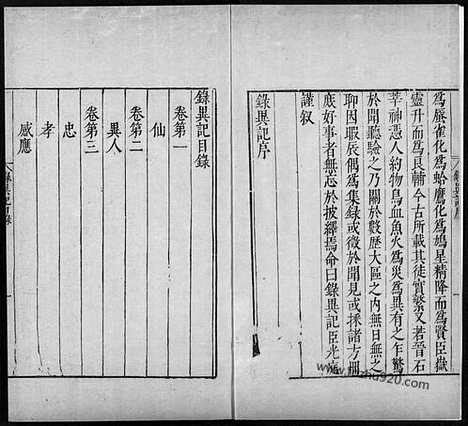 為蜃雀化為蛤鷹化為鳩星精降而為賢臣嶽
靈升而為良輔今古所載其徒實繁又若晉石
莘神憑人約物鳥血魚火為災為異有之乍驚
於聞聽驗之乃關於數歷大區之内無日無之
聊因暇辰偶為集錄或徵於聞見或採諸方冊
庶好事者無忘於披繹焉命曰錄異記臣光庭
謹叙
錄異記序
錄異記目錄
卷第一
仙
卷第二
異人
卷第三
忠
孝
感應